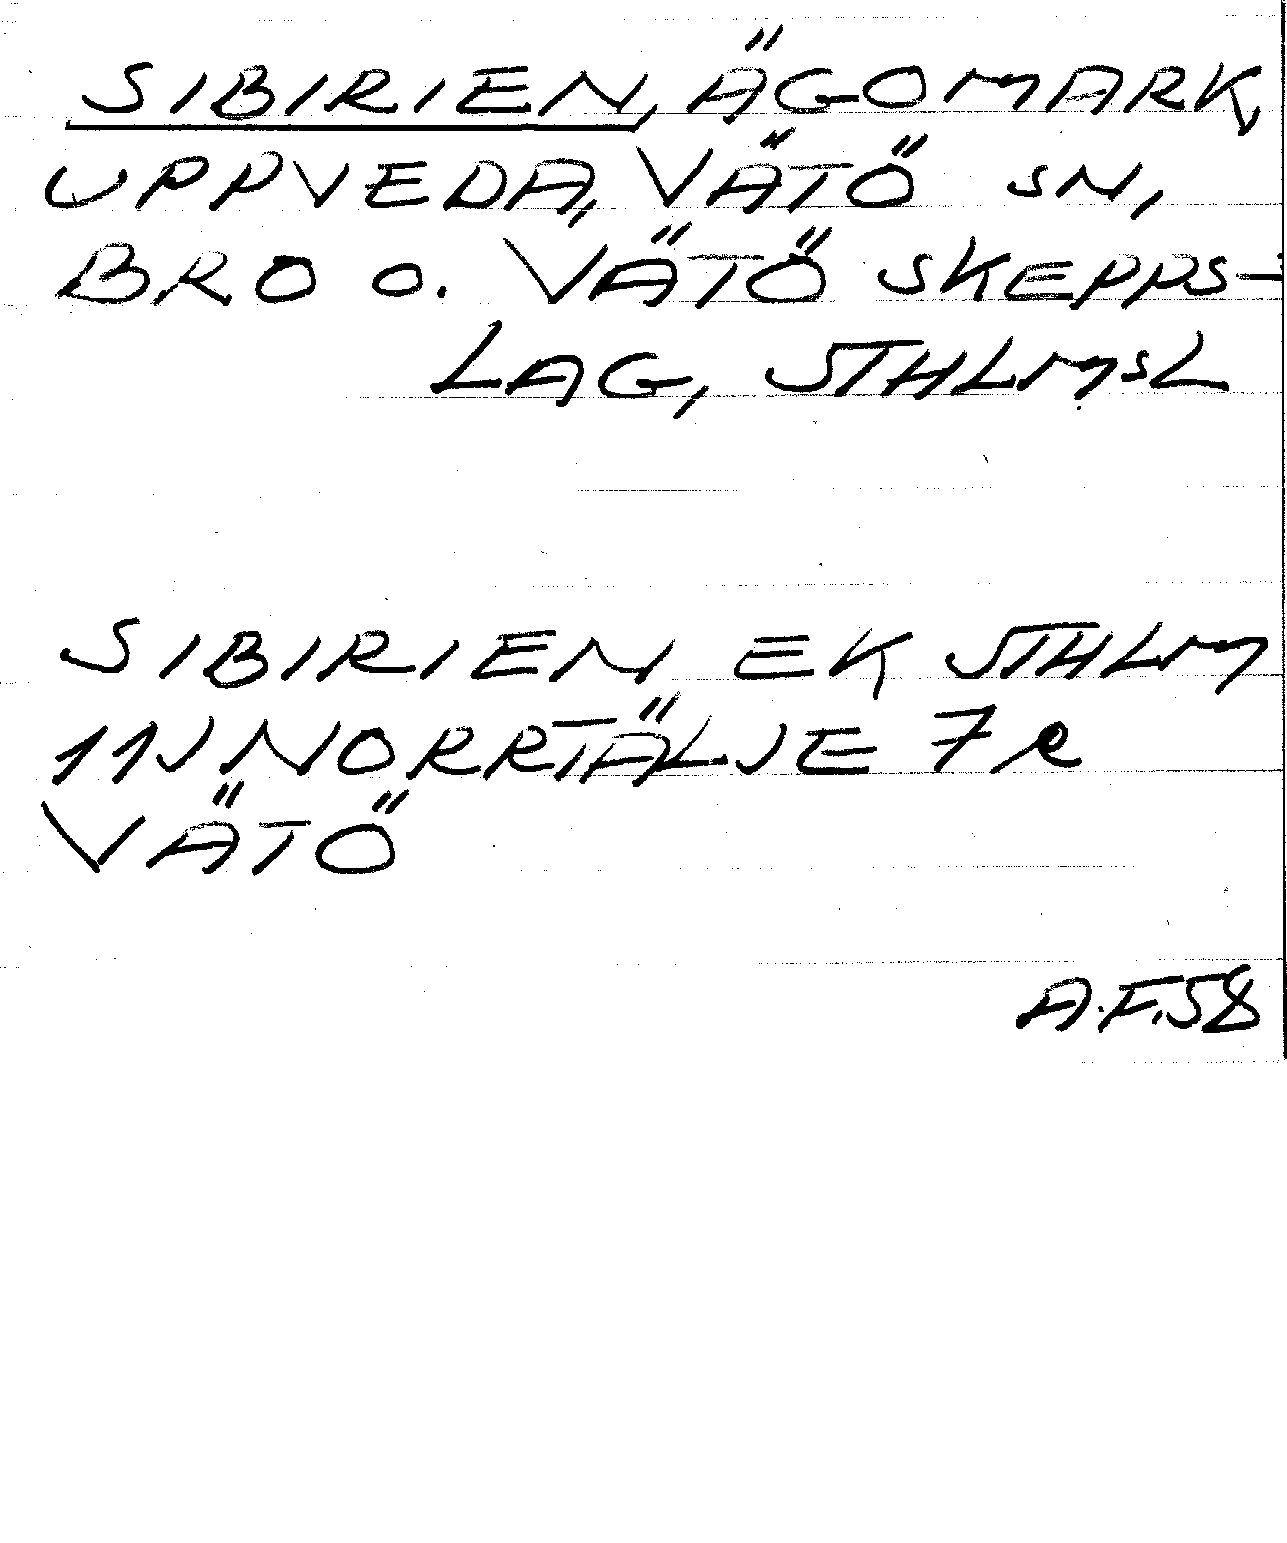 SIBIRIEN, ÄGOMARK,
UPPVEDA, VÄTÖ SN,
BRO O. VÄTÖ SKEPPS-
LAG, STHLMSL
SIBIRIEN EK STHLM
11J NORRTÄLJE 7e
VÄTÖ
A.F.58